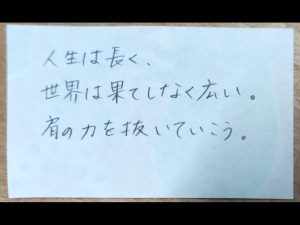 人生は長く、
世界は果てしなく広い。
肩の力を抜いていこう。